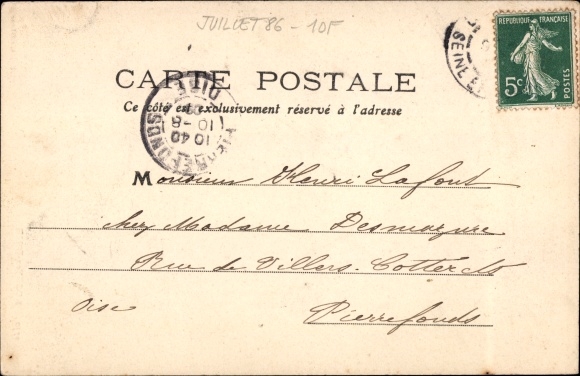 JUILLET 86 - 10F
REPUBLIQUE FRANÇAISE
5c
POSTES
SEINE
CARTE POSTALE
Ce côté est exclusivement réservé à l'adresse
PIERREFONDS
OISE
10 40
10 - 8
Monsieur Henri Lafont
chez Madame Desmazure
Rue de Villers-Cotterets
Oise Pierrefonds